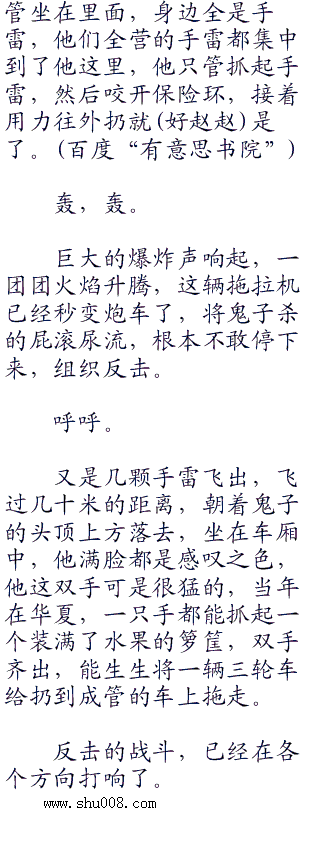 管坐在里面，身边全是手
雷，他们全营的手雷都集中
到了他这里，他只管抓起手
雷，然后咬开保险环，接着
用力往外扔就(好赵赵)是
了。(百度“有意思书院”)
轰，轰。
巨大的爆炸声响起，一
团团火焰升腾，这辆拖拉机
已经秒变炮车了，将鬼子杀
的屁滚尿流，根本不敢停下
来，组织反击。
呼呼。
又是几颗手雷飞出，飞
过几十米的距离，朝着鬼子
的头顶上方落去，坐在车厢
中，他满脸都是感叹之色，
他这双手可是很猛的，当年
在华夏，一只手都能抓起一
个装满了水果的箩筐，双手
齐出，能生生将一辆三轮车
给扔到成管的车上拖走。
反击的战斗，已经在各
个方向打响了。
www.shu008.com